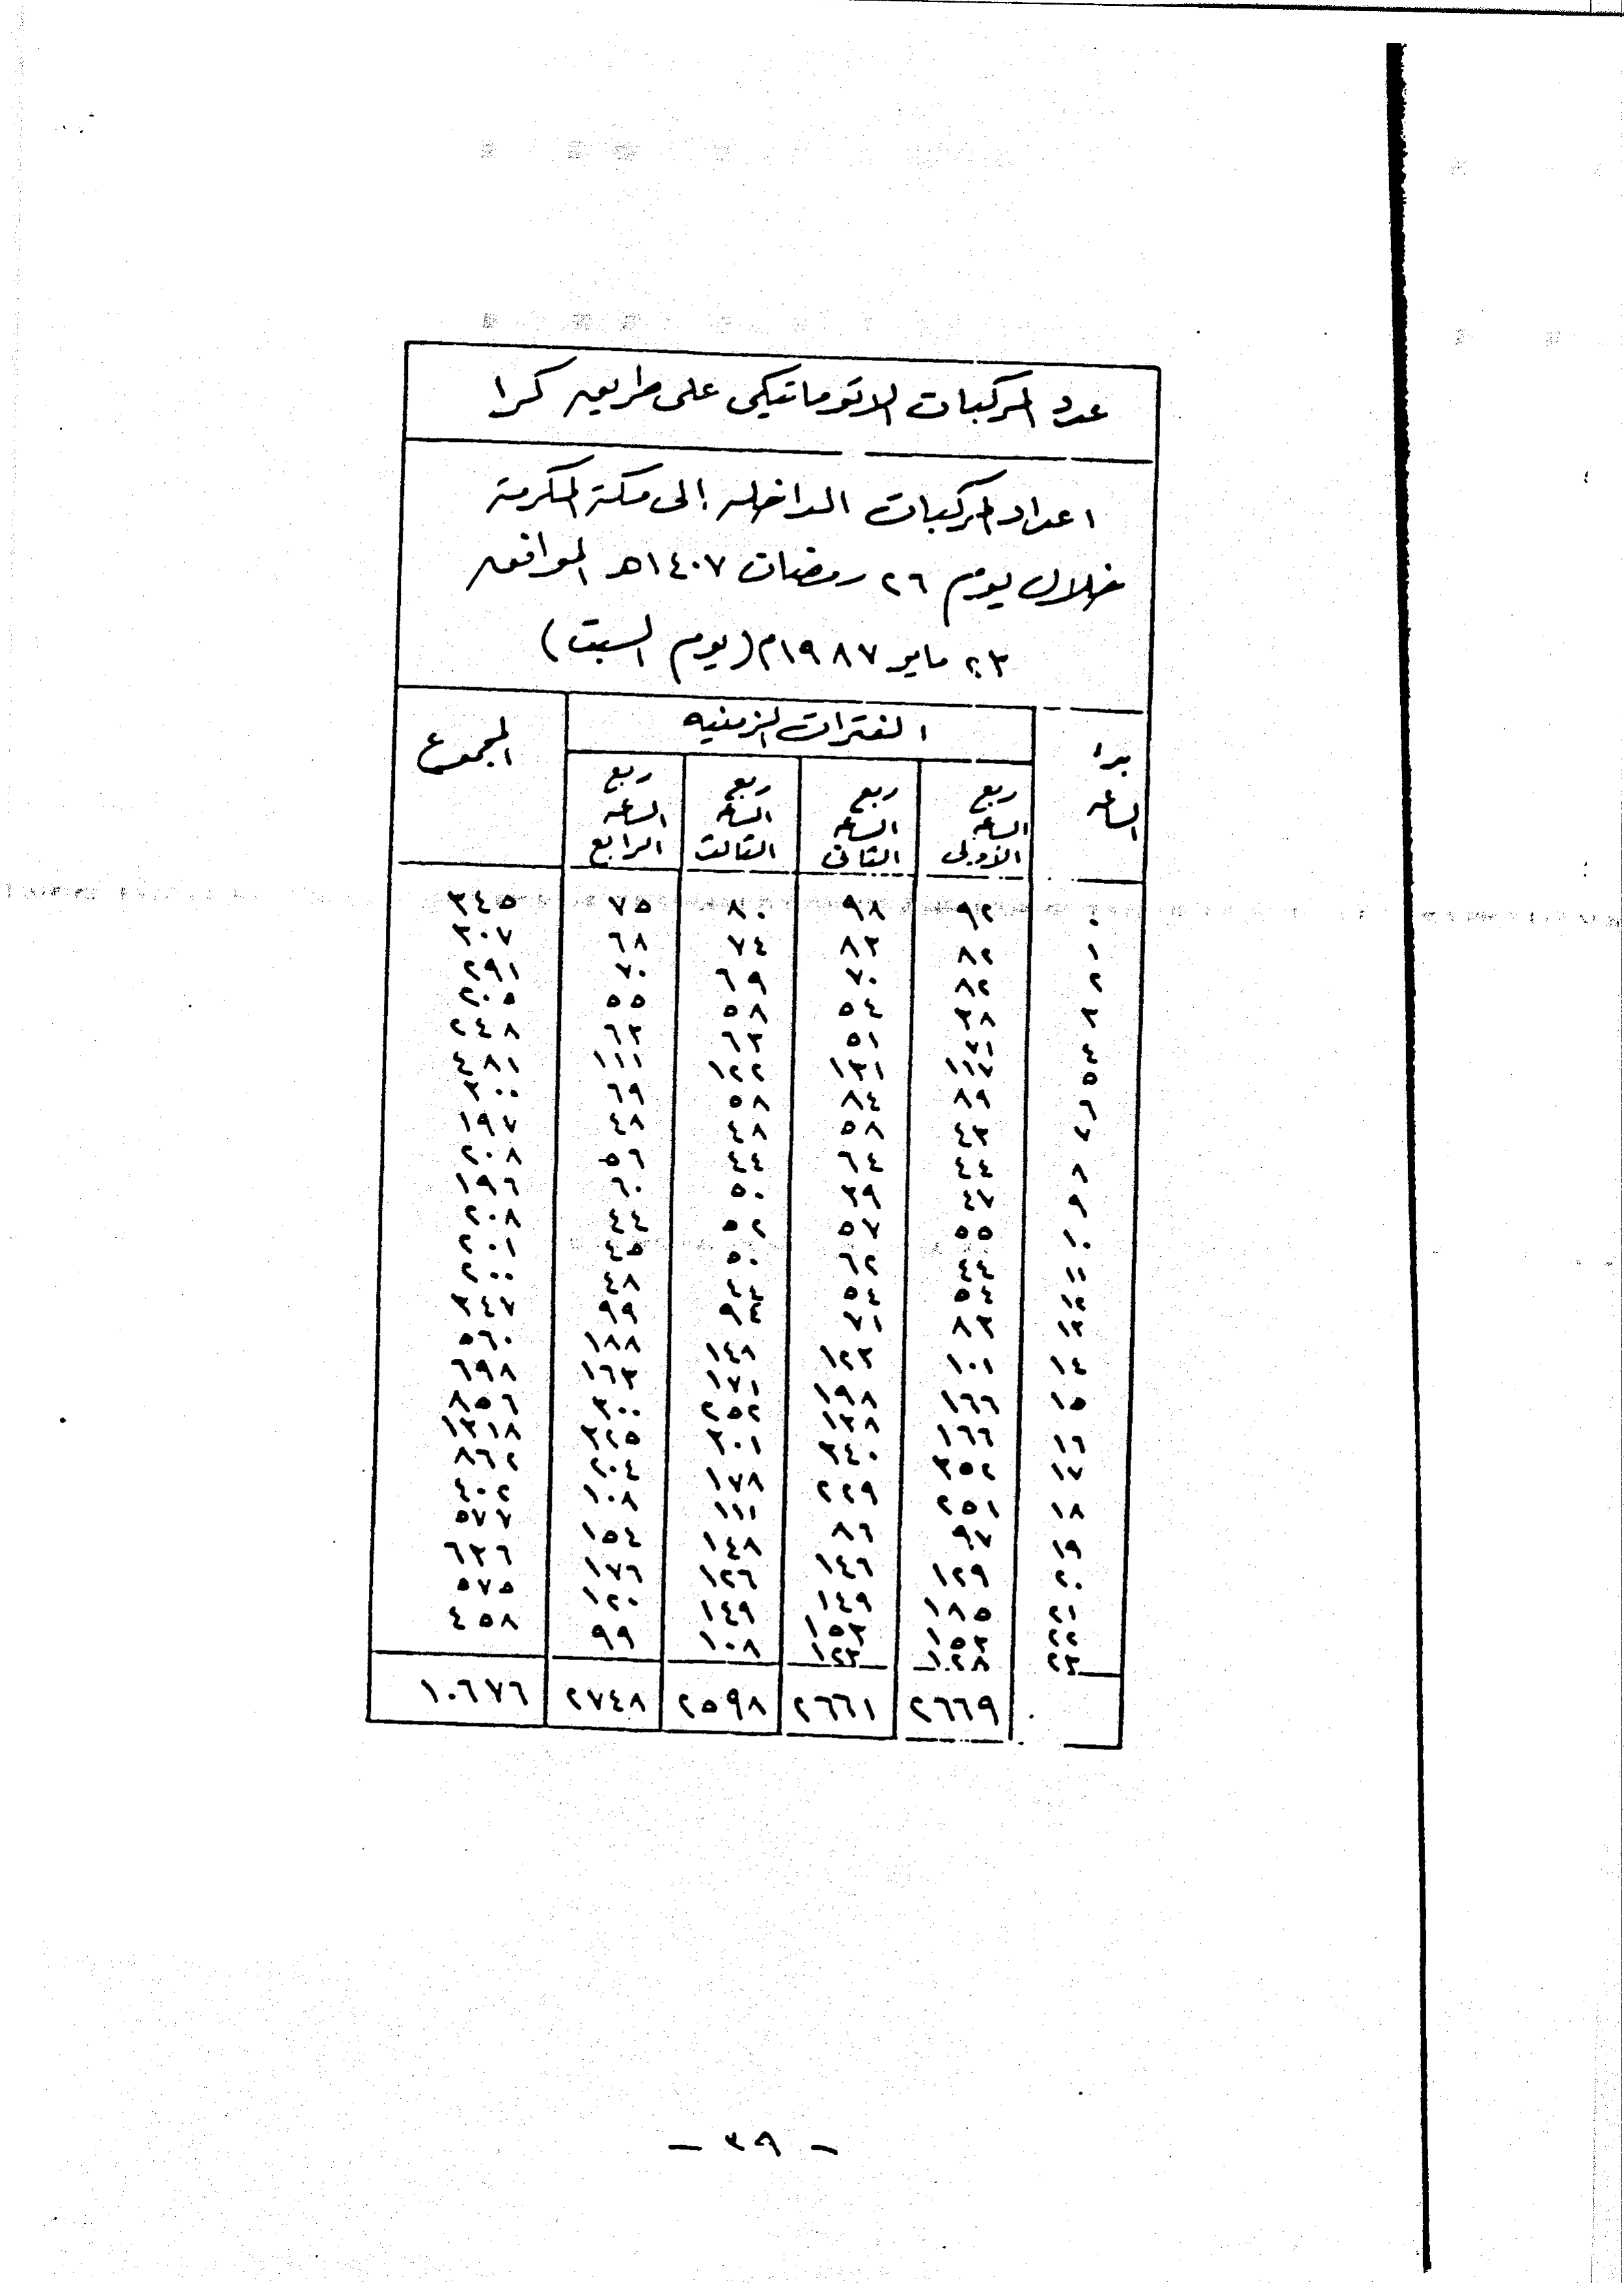 عدد المركبات الاتوماتيكى على طريق كرا
اعداد المركبات الداخله إلى مكة المكرمة
خلال يوم ٢٦ رمضان ١٤٠٧هـ الموافق
٢٣ مايو ١٩٨٧م (يوم السبت)
بدء الساعه الفترات الزمنيه المجموع
ربع الساعه الأولى ربع الساعه الثانى ربع الساعه الثالث ربع الساعه الرابع
٠ ٩٢ ٩٨ ٨٠ ٧٥ ٣٤٥
١ ٨٢ ٨٣ ٧٤ ٦٨ ٣٠٧
٢ ٨٢ ٧٠ ٦٩ ٧٠ ٢٩١
٣ ٣٨ ٥٤ ٥٨ ٥٥ ٢٠٥
٤ ٧١ ٥١ ٦٣ ٦٣ ٢٤٨
٥ ١١٧ ١٣١ ١٢٢ ١١١ ٤٨١
٦ ٨٩ ٨٤ ٥٨ ٦٩ ٣٠٠
٧ ٤٣ ٥٨ ٤٨ ٤٨ ١٩٧
٨ ٤٤ ٦٤ ٤٤ ٥٦ ٢٠٨
٩ ٤٧ ٣٩ ٥٠ ٦٠ ١٩٦
١٠ ٥٥ ٥٧ ٥٢ ٤٤ ٢٠٨
١١ ٤٤ ٦٢ ٥٠ ٤٥ ٢٠١
١٢ ٥٤ ٥٤ ٤٤ ٤٨ ٢٠٠
١٣ ٨٣ ٧١ ٩٤ ٩٩ ٣٤٧
١٤ ١٠١ ١٢٣ ١٤٨ ١٨٨ ٥٦٠
١٥ ١٦٦ ١٩٨ ١٧١ ١٦٣ ٦٩٨
١٦ ١٦٦ ١٣٨ ٢٥٢ ٣٠٠ ٨٥٦
١٧ ٣٥٢ ٣٤٠ ٣٠١ ٣٢٥ ١٣١٨
١٨ ٢٥١ ٢٢٩ ١٧٨ ٢٠٤ ٨٦٢
١٩ ٩٧ ٨٦ ١١١ ١٠٨ ٤٠٢
٢٠ ١٢٩ ١٤٦ ١٤٨ ١٥٤ ٥٧٧
٢١ ١٨٥ ١٤٩ ١٢٦ ١٧٦ ٦٣٦
٢٢ ١٥٣ ١٥٣ ١٤٩ ١٢٠ ٥٧٥
٢٣ ١٢٨ ١٢٣ ١٠٨ ٩٩ ٤٥٨
٢٦٦٩ ٢٦٦١ ٢٥٩٨ ٢٧٤٨ ١٠٦٧٦
- ٣٩ -